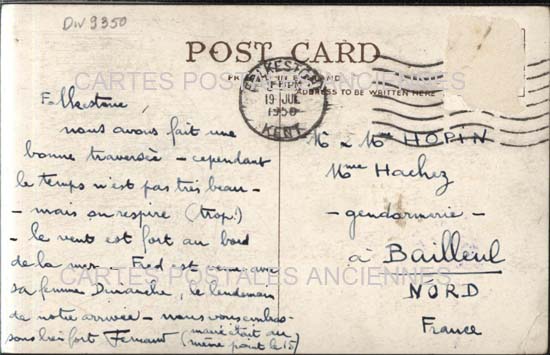 Div 9350
POST CARD
CARTES POSTALES ANCIENNES
ADDRESS TO BE WRITTEN HERE
FOLKESTONE
19 JUL
1950
KENT
Folkestone,
nous avons fait une
bonne traversée - cependant
le temps n'est pas très beau -
- mais on respire (trop!)
- le vent est fort au bord
de la mer - Fred est venu avec
sa femme Dimanche, le lendemain
de notre arrivée - nous vous embras-
sons bien fort Fernand (marie était au
même point le 15)
M & Mme HOPIN
Mme Hachez
- gendarmerie -
à Bailleul
NORD
France
CARTES POSTALES ANCIENNES